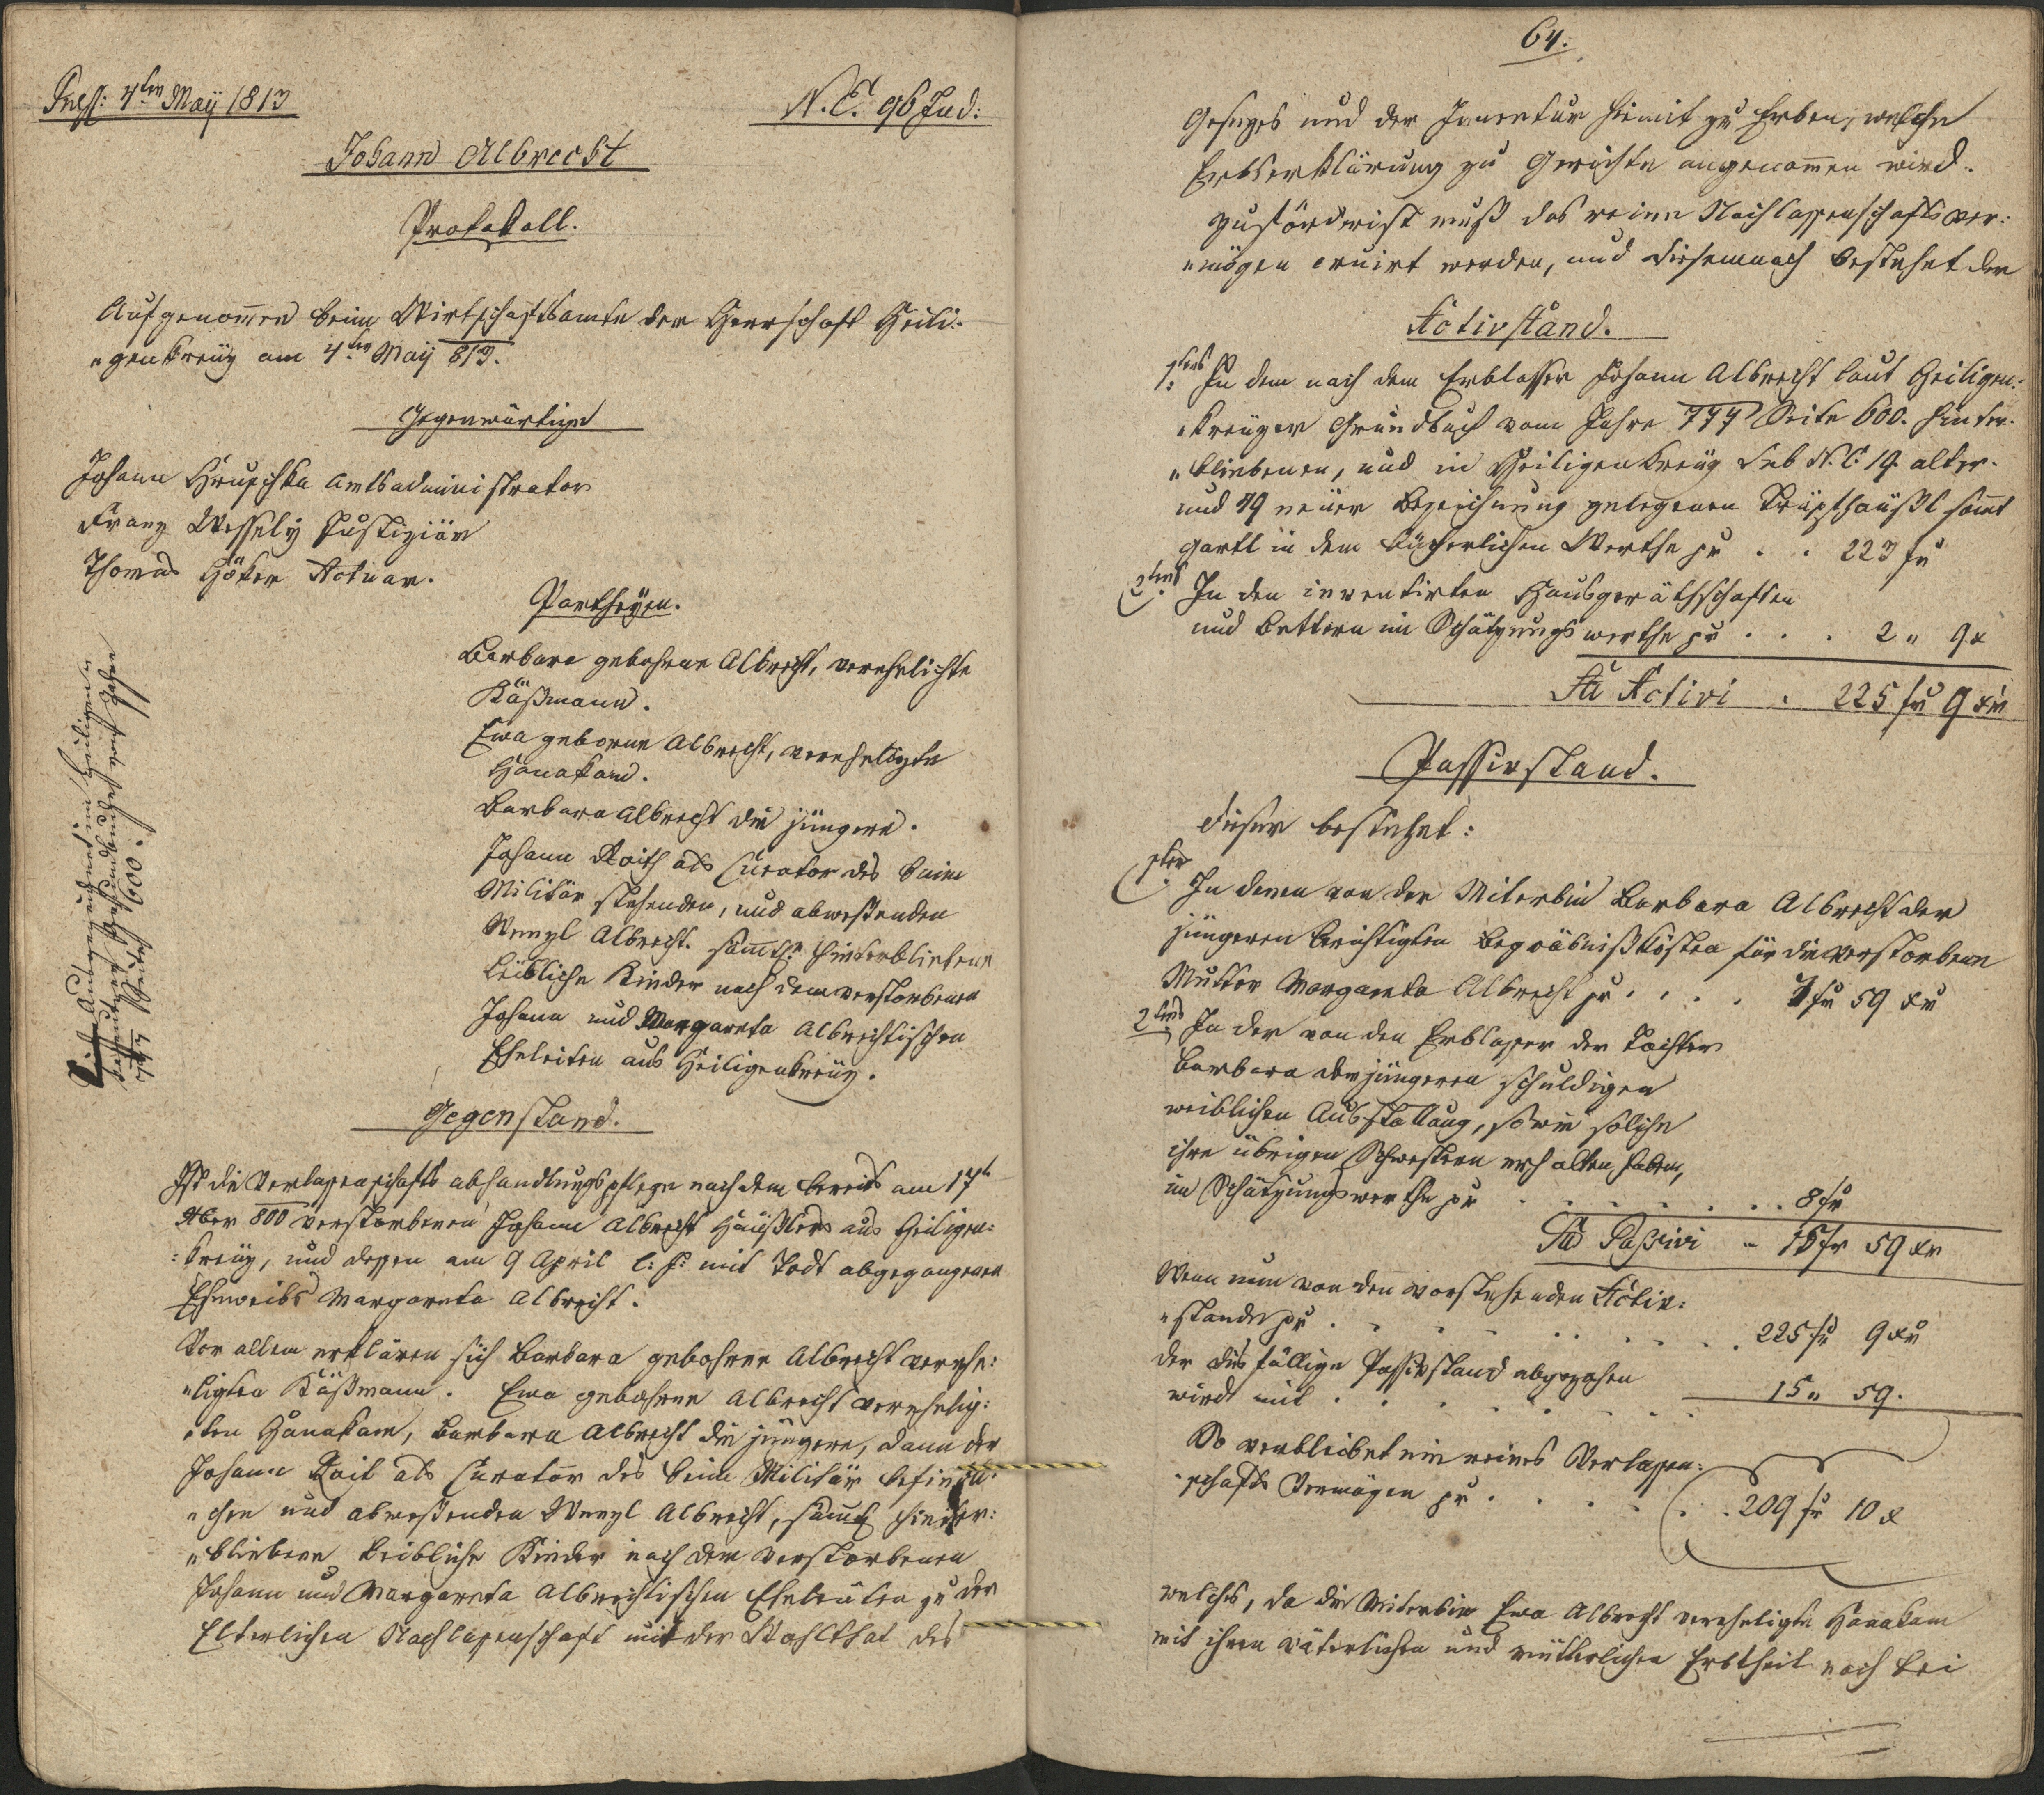 Pres: 4ten Maÿ 1813
N. E. 96 Jud:
Johann Albrecht
Protokoll.
Aufgenom̅en beim Wirtschaftsamte der Herrschaft Heili:
„genkreüz am 4ten Maÿ 813.
Gegenwärtige
Johann Hruschka Amtsadministrator
Franz Wesselÿ Justiziär
Thomas Höker Actuar.
Partheÿen.
Barbara gebohrne Albrecht, verehelichte
Käßmann.
Ewa geborne Albrecht, vereheligte
Hanakam.
Barbara Albrecht die jüngere.
Johann Roith als Curator des beim
Militär stehenden, und abweßenden
Wenzl Albrecht. sämtl. hinterbliebene
leibliche Kinder nach dem verstorbenen
Johann und Margareta Albrechtischen
Eheleiten aus Heiligenkreüz.
Ist Ausgezeichnet im Heiligen„
kreutzer Grundbuche vom Jahre
777 Seite 600.
Gegenstand.
Ist die Verlassenschafts abhandlungspflege nach dem bereits am 17t
9ber 800 verstorbenen Johann Albrecht Häußlers aus Heiligen:
:kreüz, und dessen am 9 April l: J: mit Todt abgegangenen
Eheweibs Margareta Albrecht.
Vor allem erklären sich Barbara gebohrne Albrecht verehe:
„ligten Käßmann. Ewa gebohrne Albrecht verehelig:
„ten Hanakam, Barbara Albrecht die jüngere, dann der
Johann Roit als Curator des beim Militär befindli:
„chen und abweßenden Wenzl Albrecht, säm̅tl hinter:
„bliebene leibliche Kinder nach dem verstorbenen
Johann und Margareta Albrechtischen Eheleüten zu der
Elterlichen Nachlassenschaft mit der Wohlthat des
64.
Gesezes und der Inventur hiemit zu Erben, welche
Erbserklärung zu Gerichte angenom̅en wird.
Zuförderist muß das reine Nachlassenschaftsver:
„mögen eruirt werden, und diesemnach bestehet der
Activstand.
1tens In dem nach dem Erblasser Johann Albrecht laut Heiligen:
„kreüzer Grundbuch vom Jahre 777 Seite 600. hinter:
„bliebenen, und in Heiligenkreüz sub N. C: 19. alter-
und 49 neüer Bezeichnung gelegenen Trüpfhäußl sam̅t
Gartl in dem bücherlichen Werthe pr . . 223 fr
2tens In den inventirten Hausgeräthschaften
und Bettern im Schätzungswerthe pr . . . 2 „ 9 x
Sa̅ Activi . 225 fr 9 xr
Passivstand.
Dieser bestehet:
1ten In denen von der Miterbin Barbara Albrecht der
jüngeren berichtigten Begräbnißkösten für die verstorbene
Mutter Margareta Albrecht pr . . . . 7 fr 59 xr
2tens In der von den Erblasser der Tochter
Barbara der jüngeren schuldigen
weiblichen Ausstattung, so wie solche
ihre übrigen Schwestern erhalten haben,
im Schätzungswerthe pr . . . . . . . 8 fr
Sa̅ Passivi – 15 fr 59 xr
Wenn nun von den vorstehenden Activ:
„stande pr . . . . . . . . . 225 fr 9 xr
der dießfällige Passivstand abgezohen
wird mit . . . . . . . 15 „ 59.
So verbleibet ein reines Verlassen:
„schafts Vermögen pr . . . . . . 209 fr 10 x
welches, da die Miterbin Ewa Albrecht verehligte Hanakam
mit ihren väterlichen und mütterlichen Erbtheil noch bei